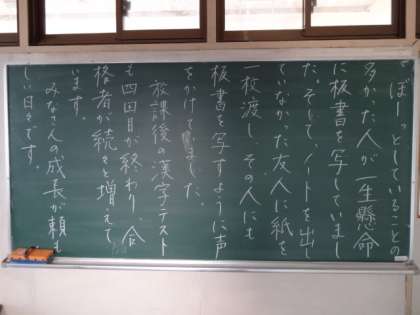 でぼーっとしていることの
多かった人が一生懸命
に板書を写していまし
た。そして、ノートを出し
ていなかった友人に紙を
一枚渡し、その人にも
板書を写すように声
をかけていました。
放課後の漢字テスト
も四回目が終わり、合
格者が続々と増えて
います。
みなさんの成長が頼も
しい日々です。